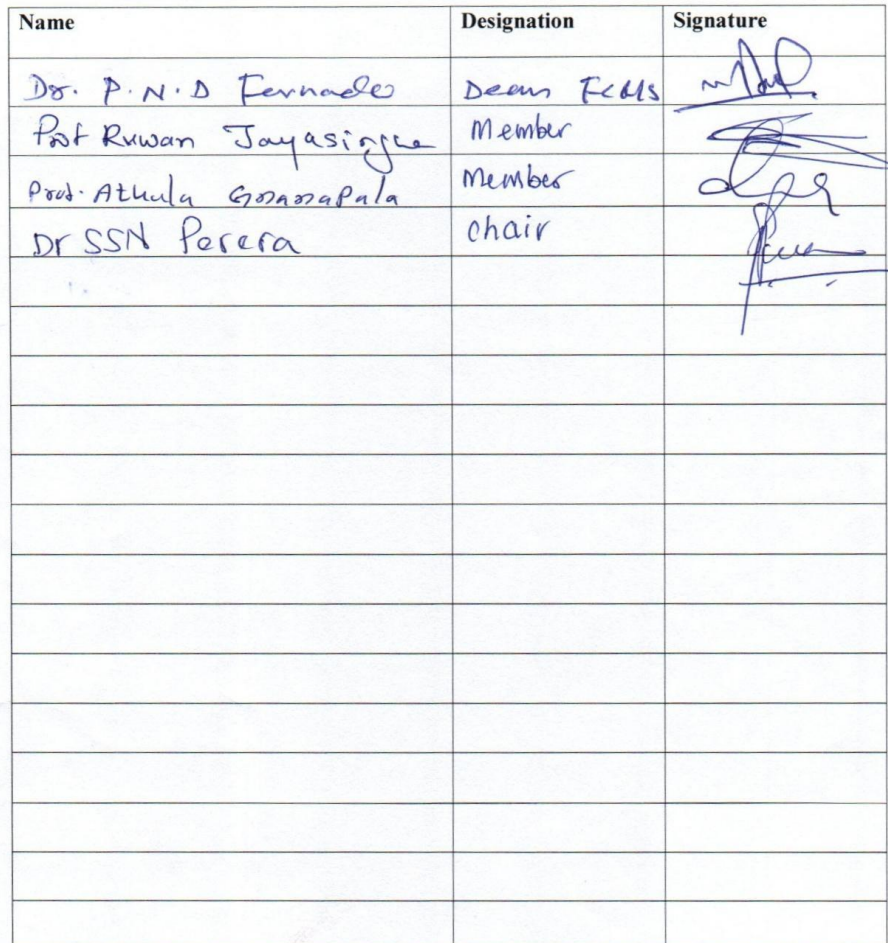 Name Designation Signature
Dr. P.N.D Fernando Dean FCMS
Prof Ruwan Jayasinghe Member
Prof. Athula Gnanapala Member
Dr SSN Perera chair